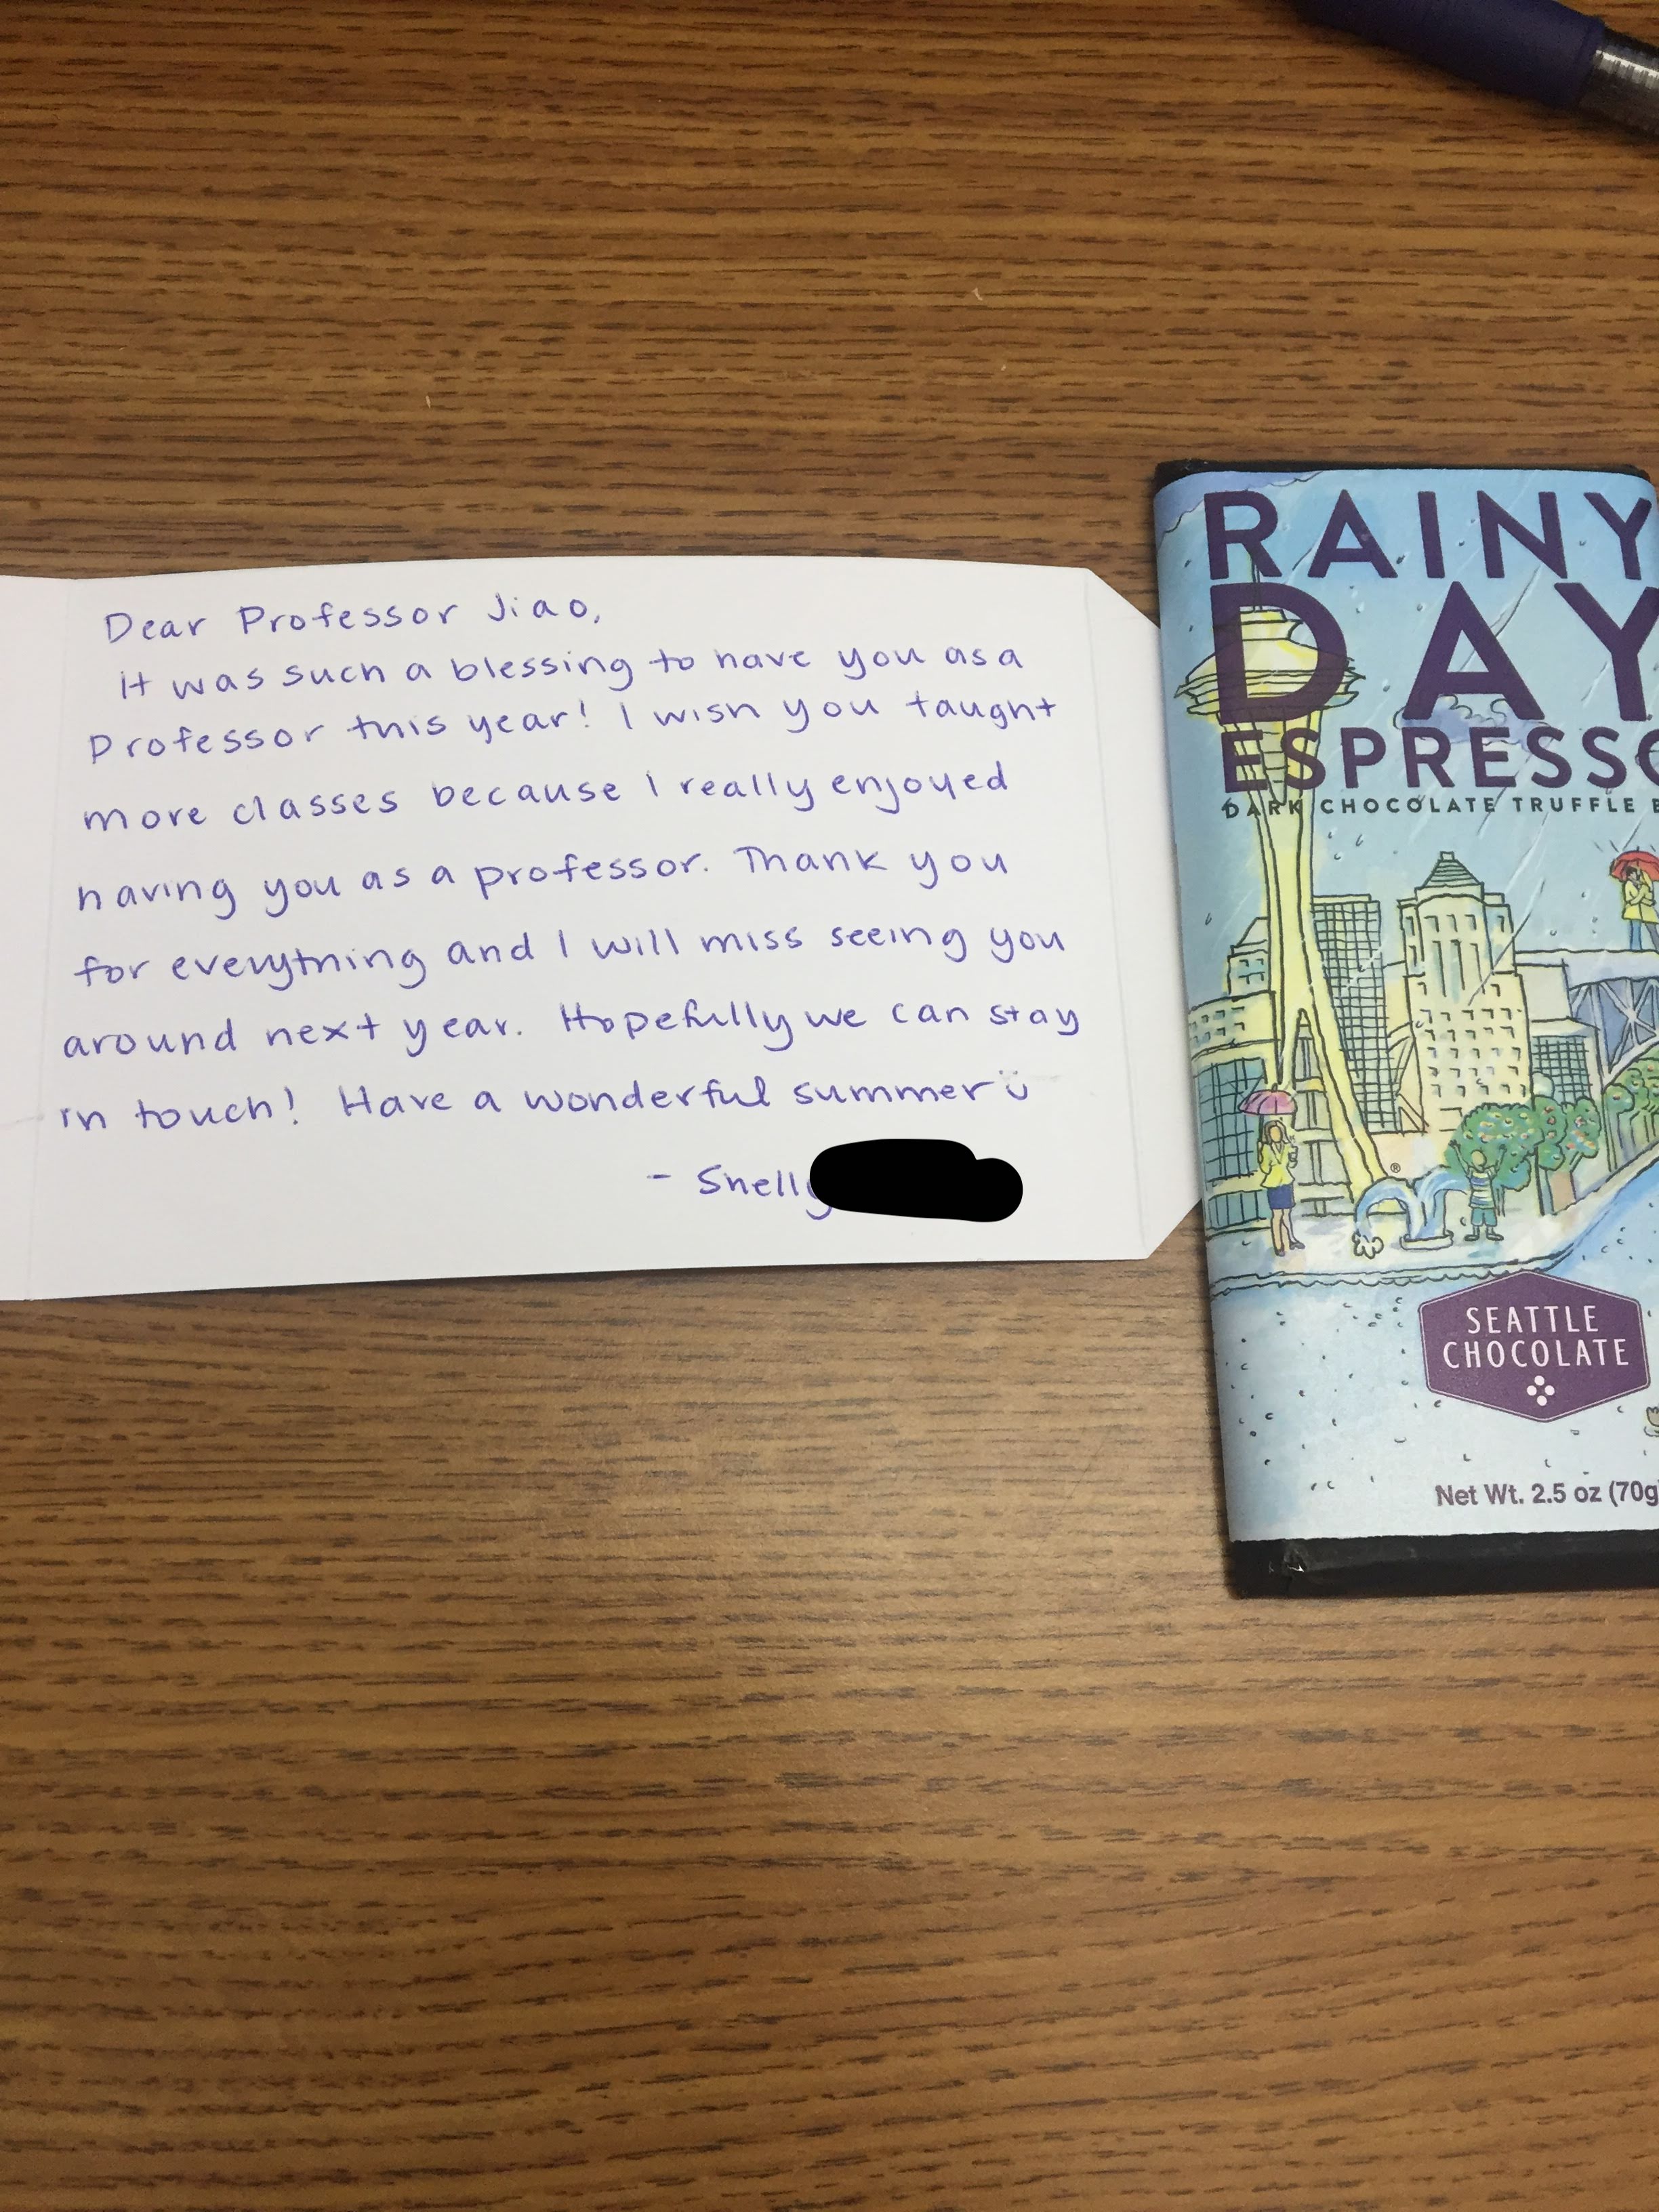 Dear Professor Jiao,
It was such a blessing to have you as a
Professor this year! I wish you taught
more classes because I really enjoyed
having you as a professor. Thank you
for everything and I will miss seeing you
around next year. Hopefully we can stay
in touch! Have a wonderful summer ü
- Shelly
RAINY
DAY
ESPRESSO
DARK CHOCOLATE TRUFFLE
®
SEATTLE
CHOCOLATE
Net Wt. 2.5 oz (70g